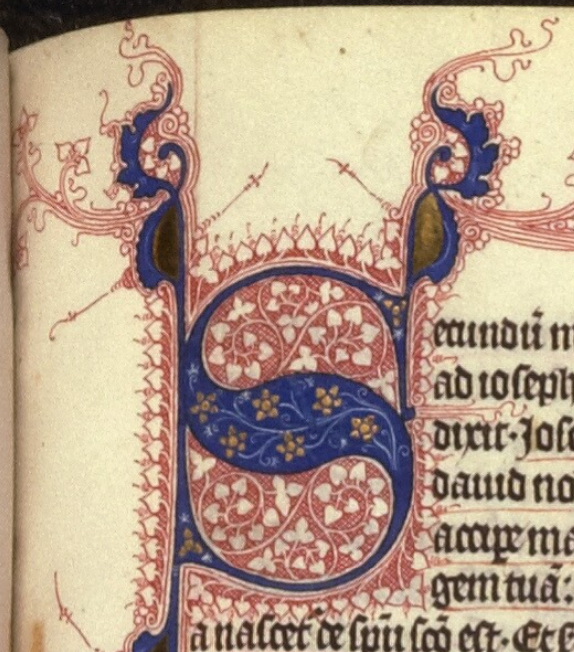 Secundū m
ad ioseph
dixit· Jose
dauid no
accipe ma
gem tuā:
a nascet̄ de spū scō est· Et